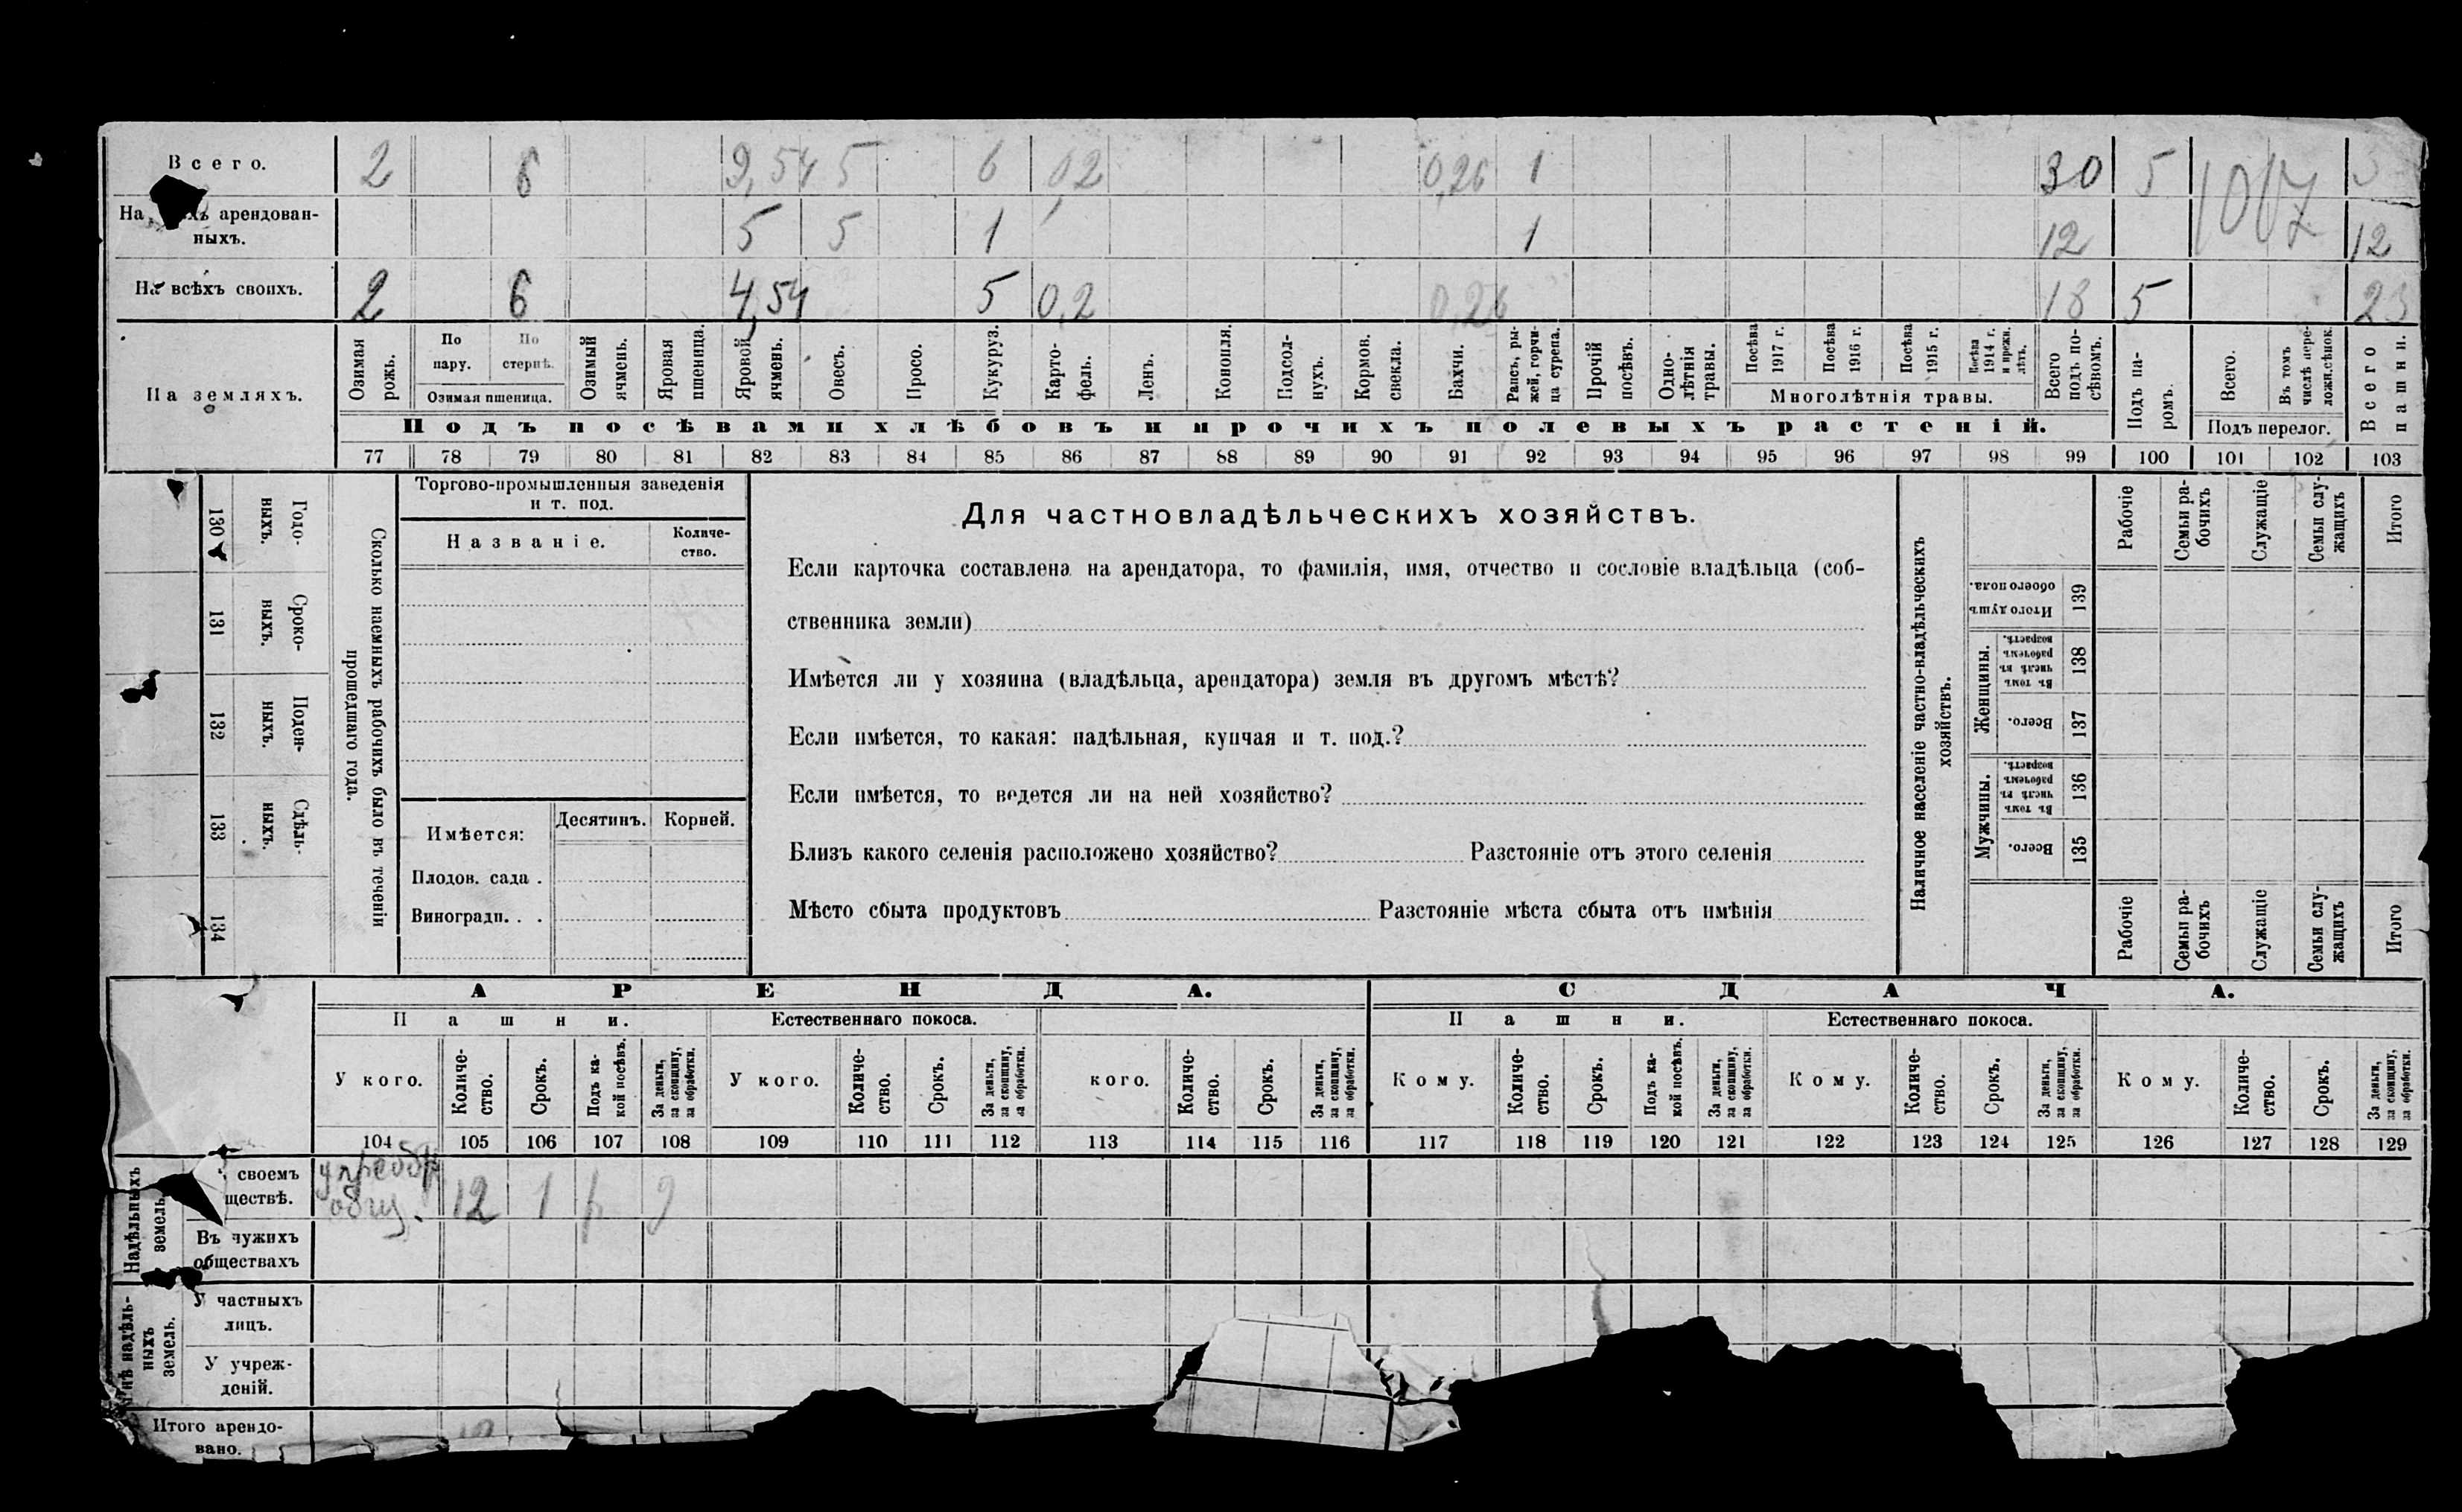 Всего. 2 6 9,54 5 6 0,2 0,26 1 30 5
арендован-
ныхъ. 5 5 1 1 12 12
На всѣхъ своихъ. 2 6 4,54 5 0,2 0,26 18 5 23
На земляхъ.
Озимая рожь.
По пару.
По стернѣ.
Озимая пшеница.
Озимый ячмень.
Яровая пшеница.
Яровой ячмень.
Овесъ.
Просо.
Кукуруз.
Карто-
фель.
Ленъ.
Конопля.
Подсол-
нухъ.
Кормов. свекла.
Бахчи.
Рапсъ, ры-
жей, горчи-
ца сурепа.
Прочій посѣвъ.
Одно-
лѣтнія травы.
Посѣва 1917 г.
Посѣва 1916 г.
Посѣва 1915 г.
Посѣва 1914 г. и прежн. лѣтъ.
Многолѣтнія травы.
Всего подъ по-
сѣвомъ.
Подъ па-
ромъ.
Всего.
Въ томъ числѣ пере-
ложн. сѣнок.
Подъ перелог.
Всего пашни.
Подъ посѣвами хлѣбовъ и прочихъ полевыхъ растеній.
77 78 79 80 81 82 83 84 85 86 87 88 89 90 91 92 93 94 95 96 97 98 99 100 101 102 103
Сколько наемныхъ рабочихъ было въ теченіи
прошедшаго года.
Годо-
выхъ.
130
Сроко-
выхъ.
131
Поден-
ныхъ.
132
Сдѣль-
ныхъ.
133
134
Торгово-промышленныя заведенія
и т. под.
Названіе.
Количе-
ство.
Имѣется:
Десятинъ.
Корней.
Плодов. сада .
Виноградн. . .
Для частновладѣльческихъ хозяйствъ.
Если карточка составлена на арендатора, то фамилія, имя, отчество и сословіе владѣльца (соб-
ственника земли)
Имѣется ли у хозяина (владѣльца, арендатора) земля въ другомъ мѣстѣ?
Если имѣется, то какая: надѣльная, купчая и т. под.?
Если имѣется, то ведется ли на ней хозяйство?
Близъ какого селенія расположено хозяйство? Разстояніе отъ этого селенія
Мѣсто сбыта продуктовъ Разстояніе мѣста сбыта отъ имѣнія
Наличное населеніе частно-владѣльческихъ
хозяйствъ.
Рабочіе
Семьи ра-
бочихъ
Служащіе
Семьи слу-
жащихъ
Итого
Итого душъ обоего пола.
139
Женщины.
Въ томъ числѣ въ рабочемъ возрастѣ.
138
Всего.
137
Мужчины.
Въ томъ числѣ въ рабочемъ возрастѣ.
136
Всего.
135
Рабочіе
Семьи ра-
бочихъ
Служащіе
Семьи слу-
жащихъ
Итого
АРЕНДА. СДАЧА.
Пашни. Естественнаго покоса. Пашни. Естественнаго покоса.
У кого.
Количе-
ство.
Срокъ.
Подъ ка-
кой посѣвъ.
За деньги, за скопщину, за обработки.
У кого.
Количе-
ство.
Срокъ.
За деньги, за скопщину, за обработки.
кого.
Количе-
ство.
Срокъ.
За деньги, за скопщину, за обработки.
Кому.
Количе-
ство.
Срокъ.
Подъ ка-
кой посѣвъ.
За деньги, за скопщину, за обработки.
Кому.
Количе-
ство.
Срокъ.
За деньги, за скопщину, за обработки.
Кому.
Количе-
ство.
Срокъ.
За деньги, за скопщину, за обработки.
104 105 106 107 108 109 110 111 112 113 114 115 116 117 118 119 120 121 122 123 124 125 126 127 128 129
Надѣльныхъ земель.
своемъ
ществѣ. общ. 12 1
Въ чужихъ
обществахъ
надѣль-
ныхъ
земель.
У частныхъ
лицъ.
У учреж-
деній.
Итого арендо-
вано.